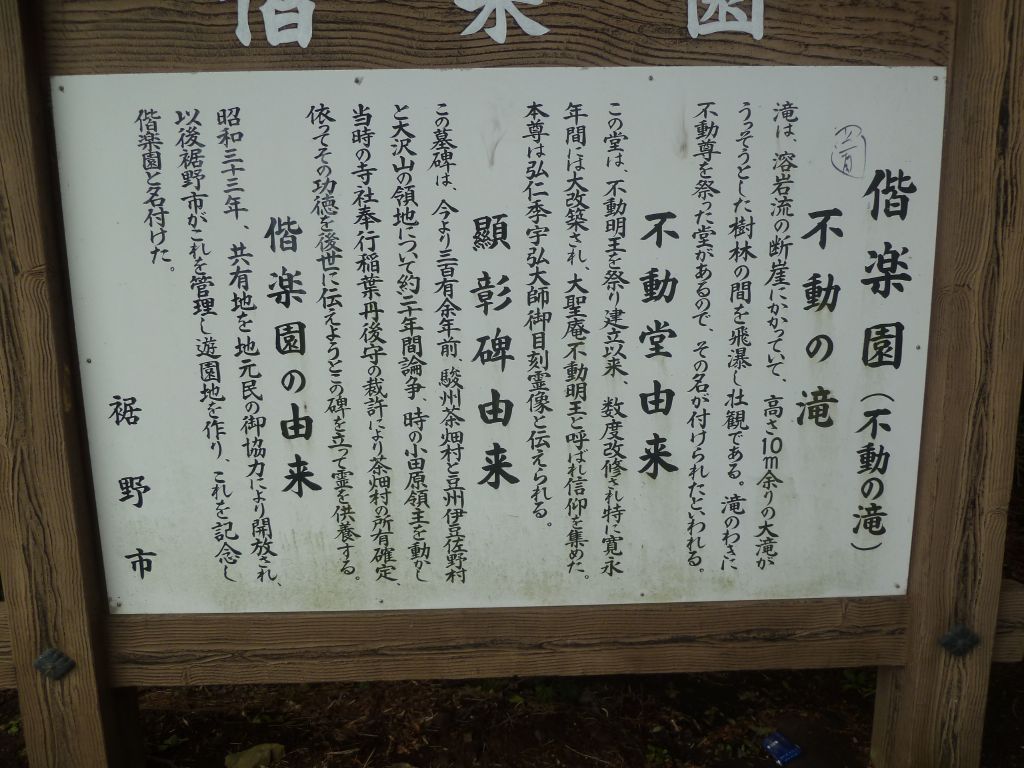 偕楽園
偕楽園（不動の滝）
不動の滝
滝は、溶岩流の断崖にかかっていて、高さ10m余りの大滝が
うっそうとした樹林の間を飛瀑し壮観である。滝のわきに
不動尊を祭った堂があるので、その名が付けられたといわれる。
不動堂由来
この堂は、不動明王を祭り建立以来、数度改修され特に寛永
年間には大改築され、大聖庵不動明王と呼ばれ信仰を集めた。
本尊は弘仁季宇弘大師御目刻霊像と伝えられる。
顯彰碑由来
この墓碑は、今より三百有余年前、駿州茶畑村と豆州伊豆佐野村
と大沢山の領地について約二十年間論争、時の小田原領主を動かし
当時の寺社奉行稲葉丹後守の裁計により茶畑村の所有確定、
依ってその功徳を後世に伝えようとこの碑を立って霊を供養する。
偕楽園の由来
昭和三十三年、共有地を地元民の御協力により開放され、
以後裾野市がこれを管理し遊園地を作り、これを記念し
偕楽園と名付けた。
裾野市